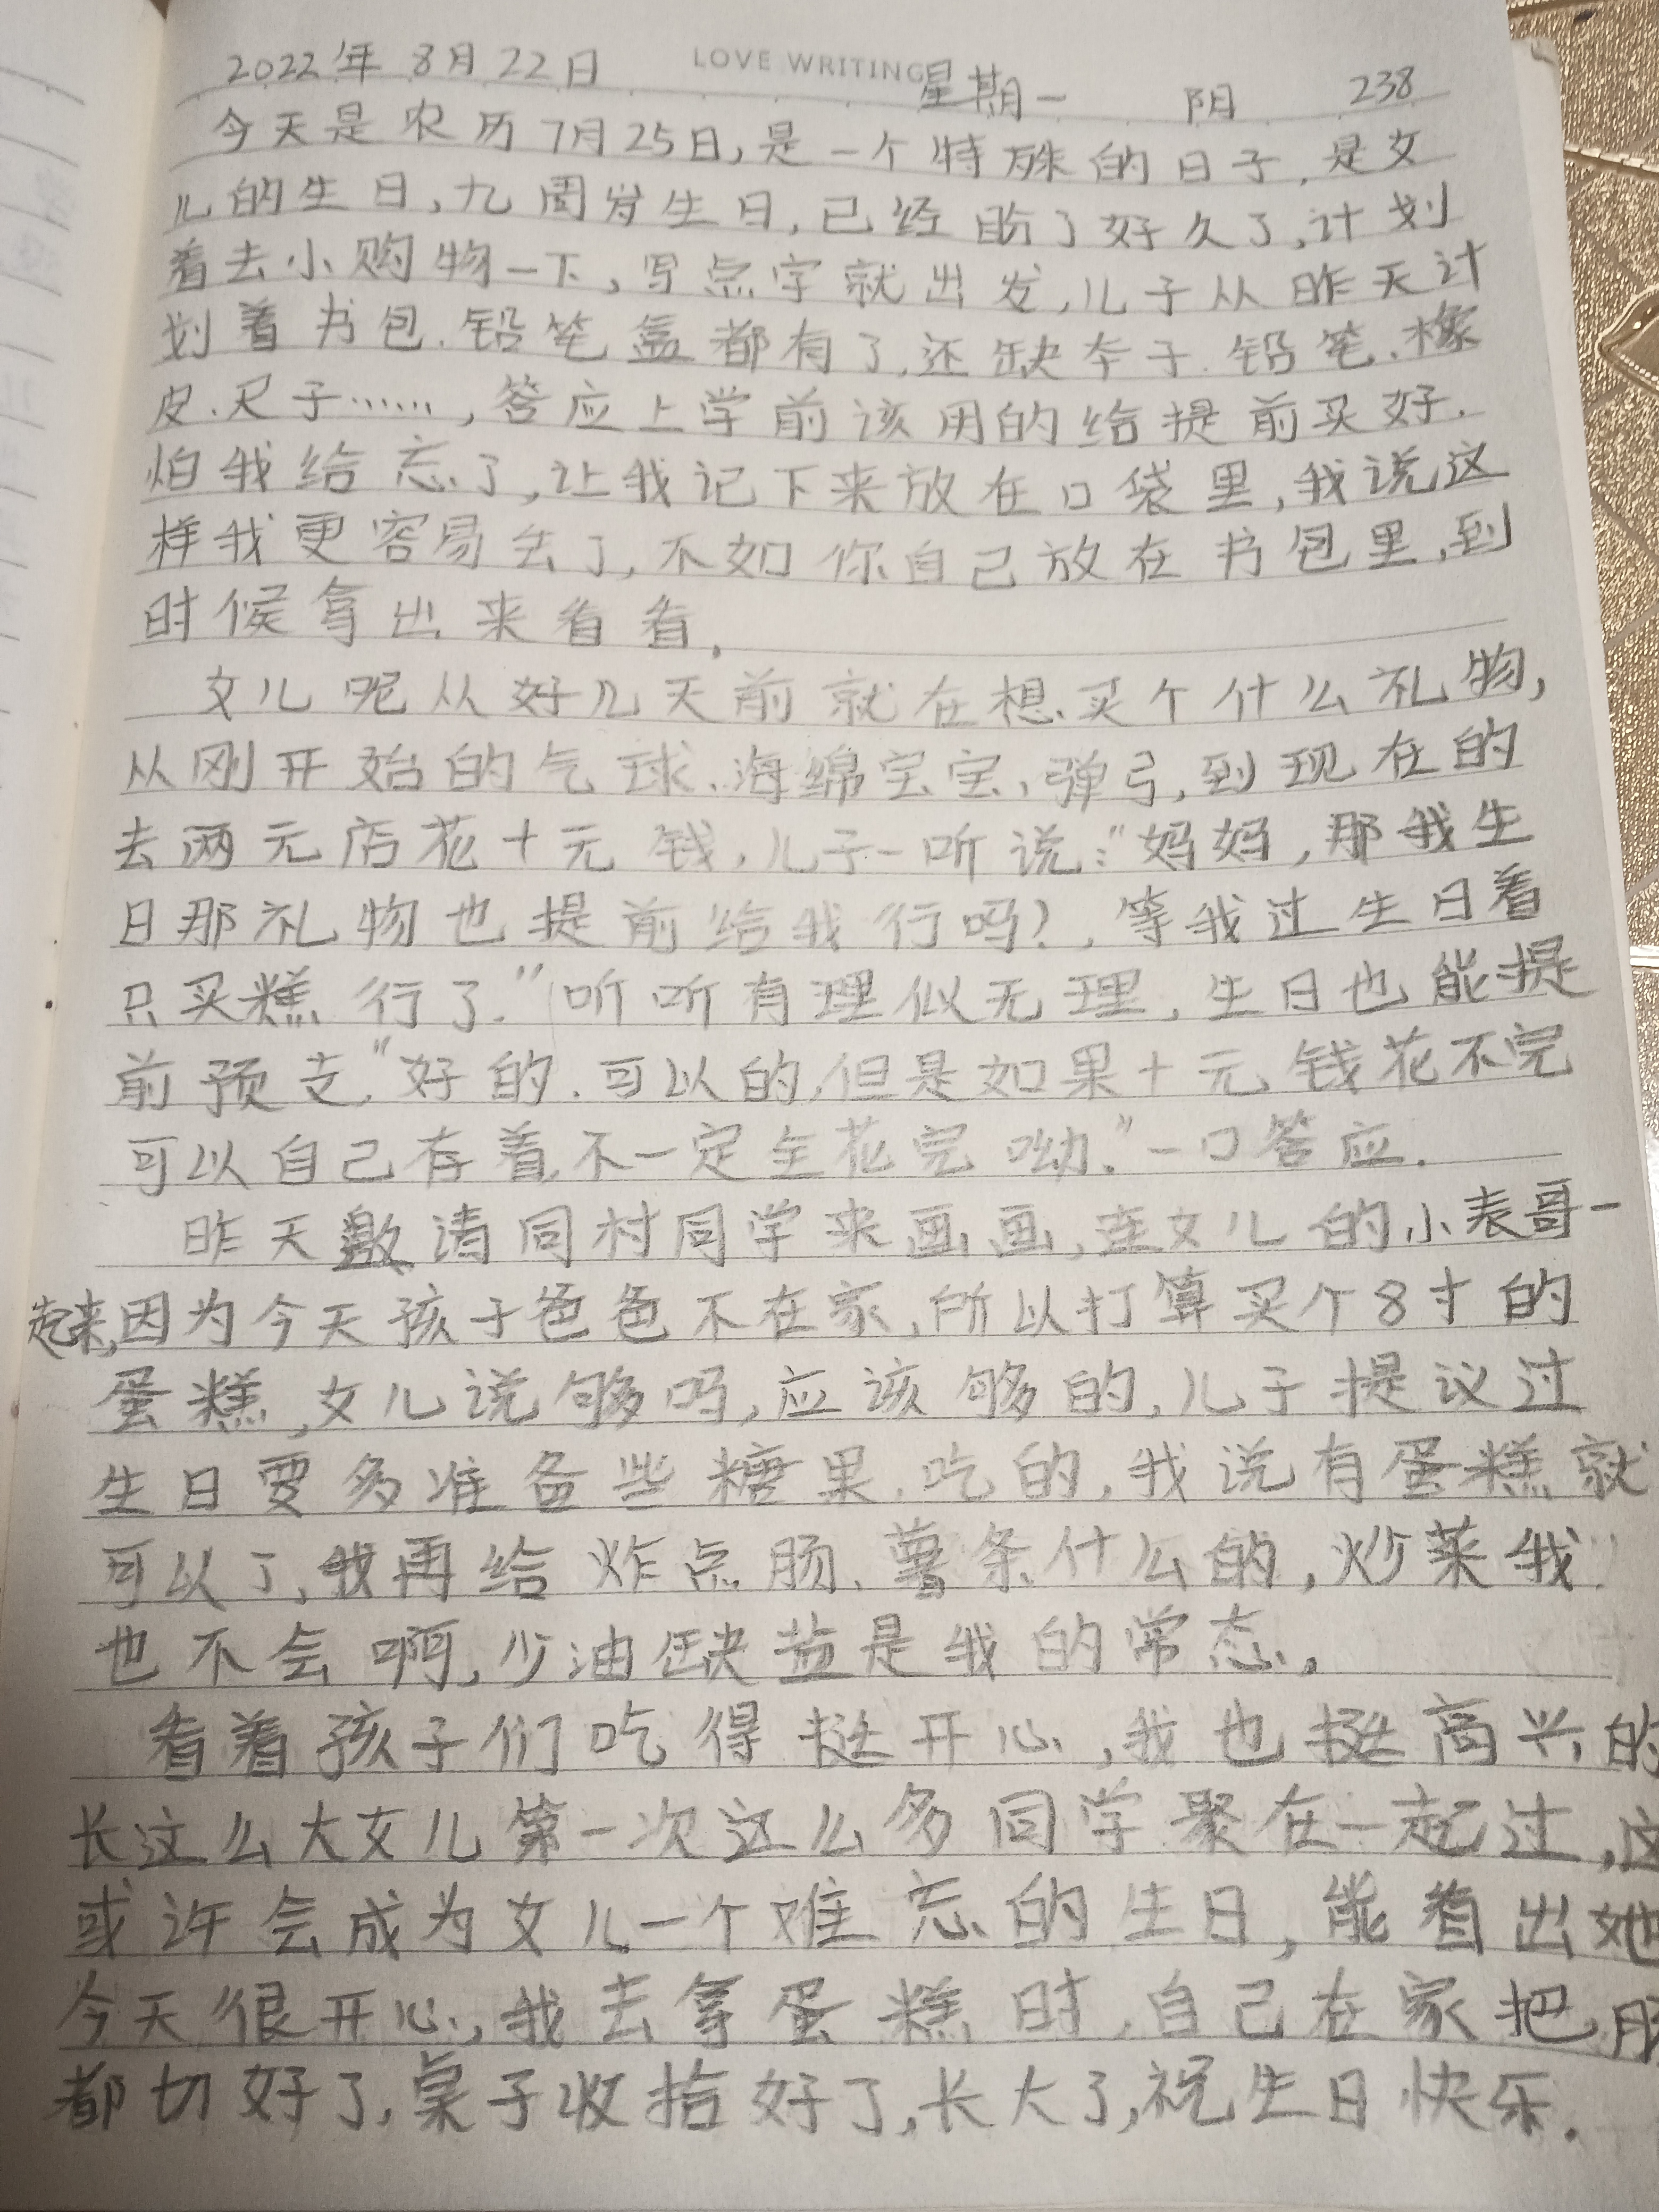 LOVE WRITING
2022年 8月22日 星期一 阴 238
今天是农历7月25日,是一个特殊的日子,是女
儿的生日,九周岁生日,已经盼了好久了,计划
着去小购物一下,写点字就出发,儿子从昨天计
划着书包、铅笔盒都有了,还缺本子、铅笔、橡
皮、尺子……,答应上学前该用的给提前买好.
怕我给忘了,让我记下来放在口袋里,我说这
样我更容易丢了,不如你自己放在书包里,到
时候拿出来看看。
女儿呢从好几天前就在想买个什么礼物,
从刚开始的气球、海绵宝宝、弹弓,到现在的
去两元店花十元钱,儿子一听说:"妈妈,那我生
日那礼物也提前给我行吗?,等我过生日着
只买糕行了."听听有理似无理,生日也能提
前预支,"好的,可以的,但是如果十元钱花不完
可以自己存着,不一定全花完呦."一口答应.
昨天邀请同村同学来画画,连女儿的小表哥一
起来,因为今天孩子爸爸不在家,所以打算买个8寸的
蛋糕,女儿说够吗,应该够的,儿子提议过
生日要多准备些糖果、吃的,我说有蛋糕就
可以了,我再给炸点肠、薯条什么的,炒菜我
也不会啊,少油缺盐是我的常态.
看着孩子们吃得挺开心,我也挺高兴的
长这么大女儿第一次这么多同学聚在一起过,这
或许会成为女儿一个难忘的生日,能看出她
今天很开心,我去拿蛋糕时,自己在家把肠
都切好了,桌子收拾好了,长大了,祝生日快乐.